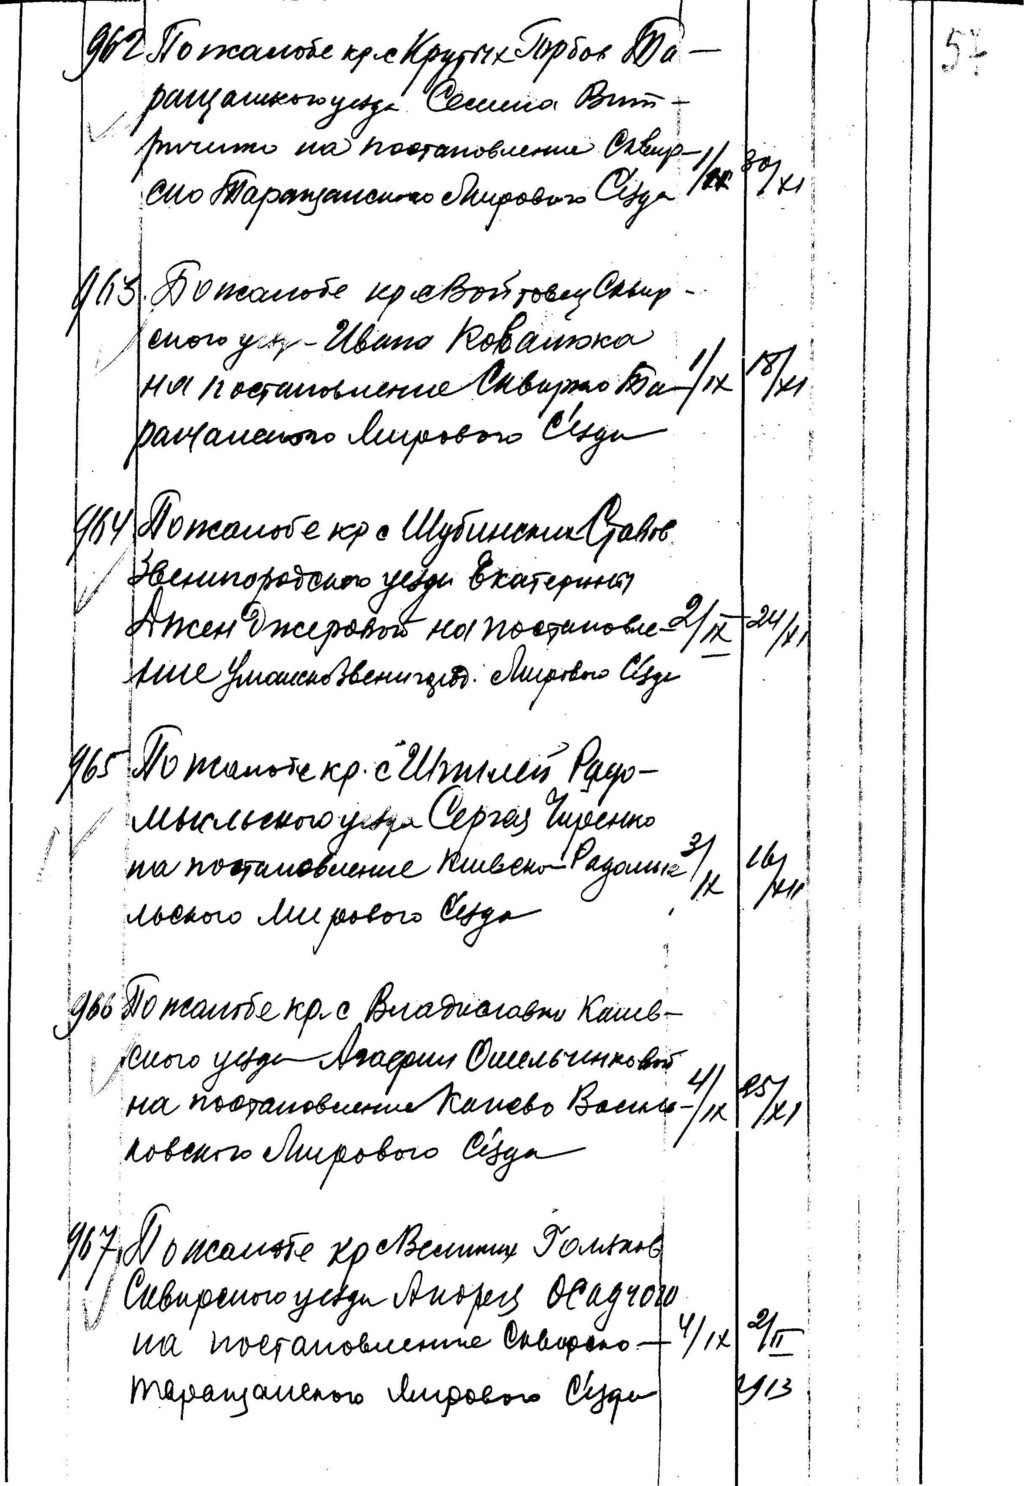 57
962 По жалобе кр. с Крутых Горбов Та-
ращанского уезда Семена Вит-
на постановление Сквир-
ско Таращанского Мирового С'езда 1/IX 30/XI
963. По жалобе кр. с Войтовец Сквир-
ского уезда Ивана Ковалюка
на постановление Сквирско Та- 1/IX 18/XI
ращанского Мирового С'езда
964 По жалобе кр с Шубинских Ставов
Звенигородского уезда Екатерины
Джен Джеровой на постановле- 2/IX 24/XI
ние Уманско Звенигород. Мирового С'езда
965 По жалобе кр. с Радо-
мысльского уезда Сергея Чиренко
на постановление Киевско-Радомыс 3/IX 16/XII
льского Мирового С'езда
966 По жалобе кр. с Владиславки Канев-
ского уезда Агафии Омельчинковой
на постановление Канево Василь- 4/IX 25/XI
ковского Мирового С'езда
967. По жалобе кр с Великих Гольяков
Сквирского уезда Андрея Осадчого
на постановление Сквирско- 4/IX 2/II
Таращанского Мирового С'езда 1913